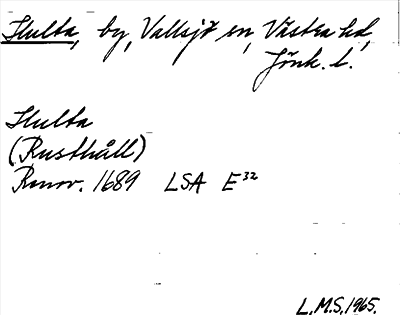 Hulta, by, Vallsjö sn, Västra hd,
Jönk. l.
Hulta
(Rusthåll)
Renov. 1689 LSA E³²
L.M.S. 1965.